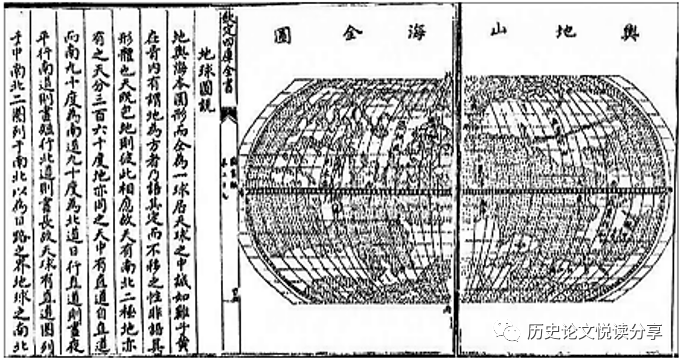 輿地山海全圖
欽定四庫全書
地球圖說
地與海本圓形而全為一球居天球之中誠如雞子黃
在青內有謂地為方者乃語其定而不移之性非語其
形體也天既包地則彼此相應故天有南北二極地亦
有之天分三百六十度地亦同之天中有直道自直道
而南九十度為南道九十度為北道日行直道則晝夜
平行南道則晝短行北道則晝長故天球有直道圈列
于中南北二圈列于南北以為日路之界地球之南北
历史论文悦读分享